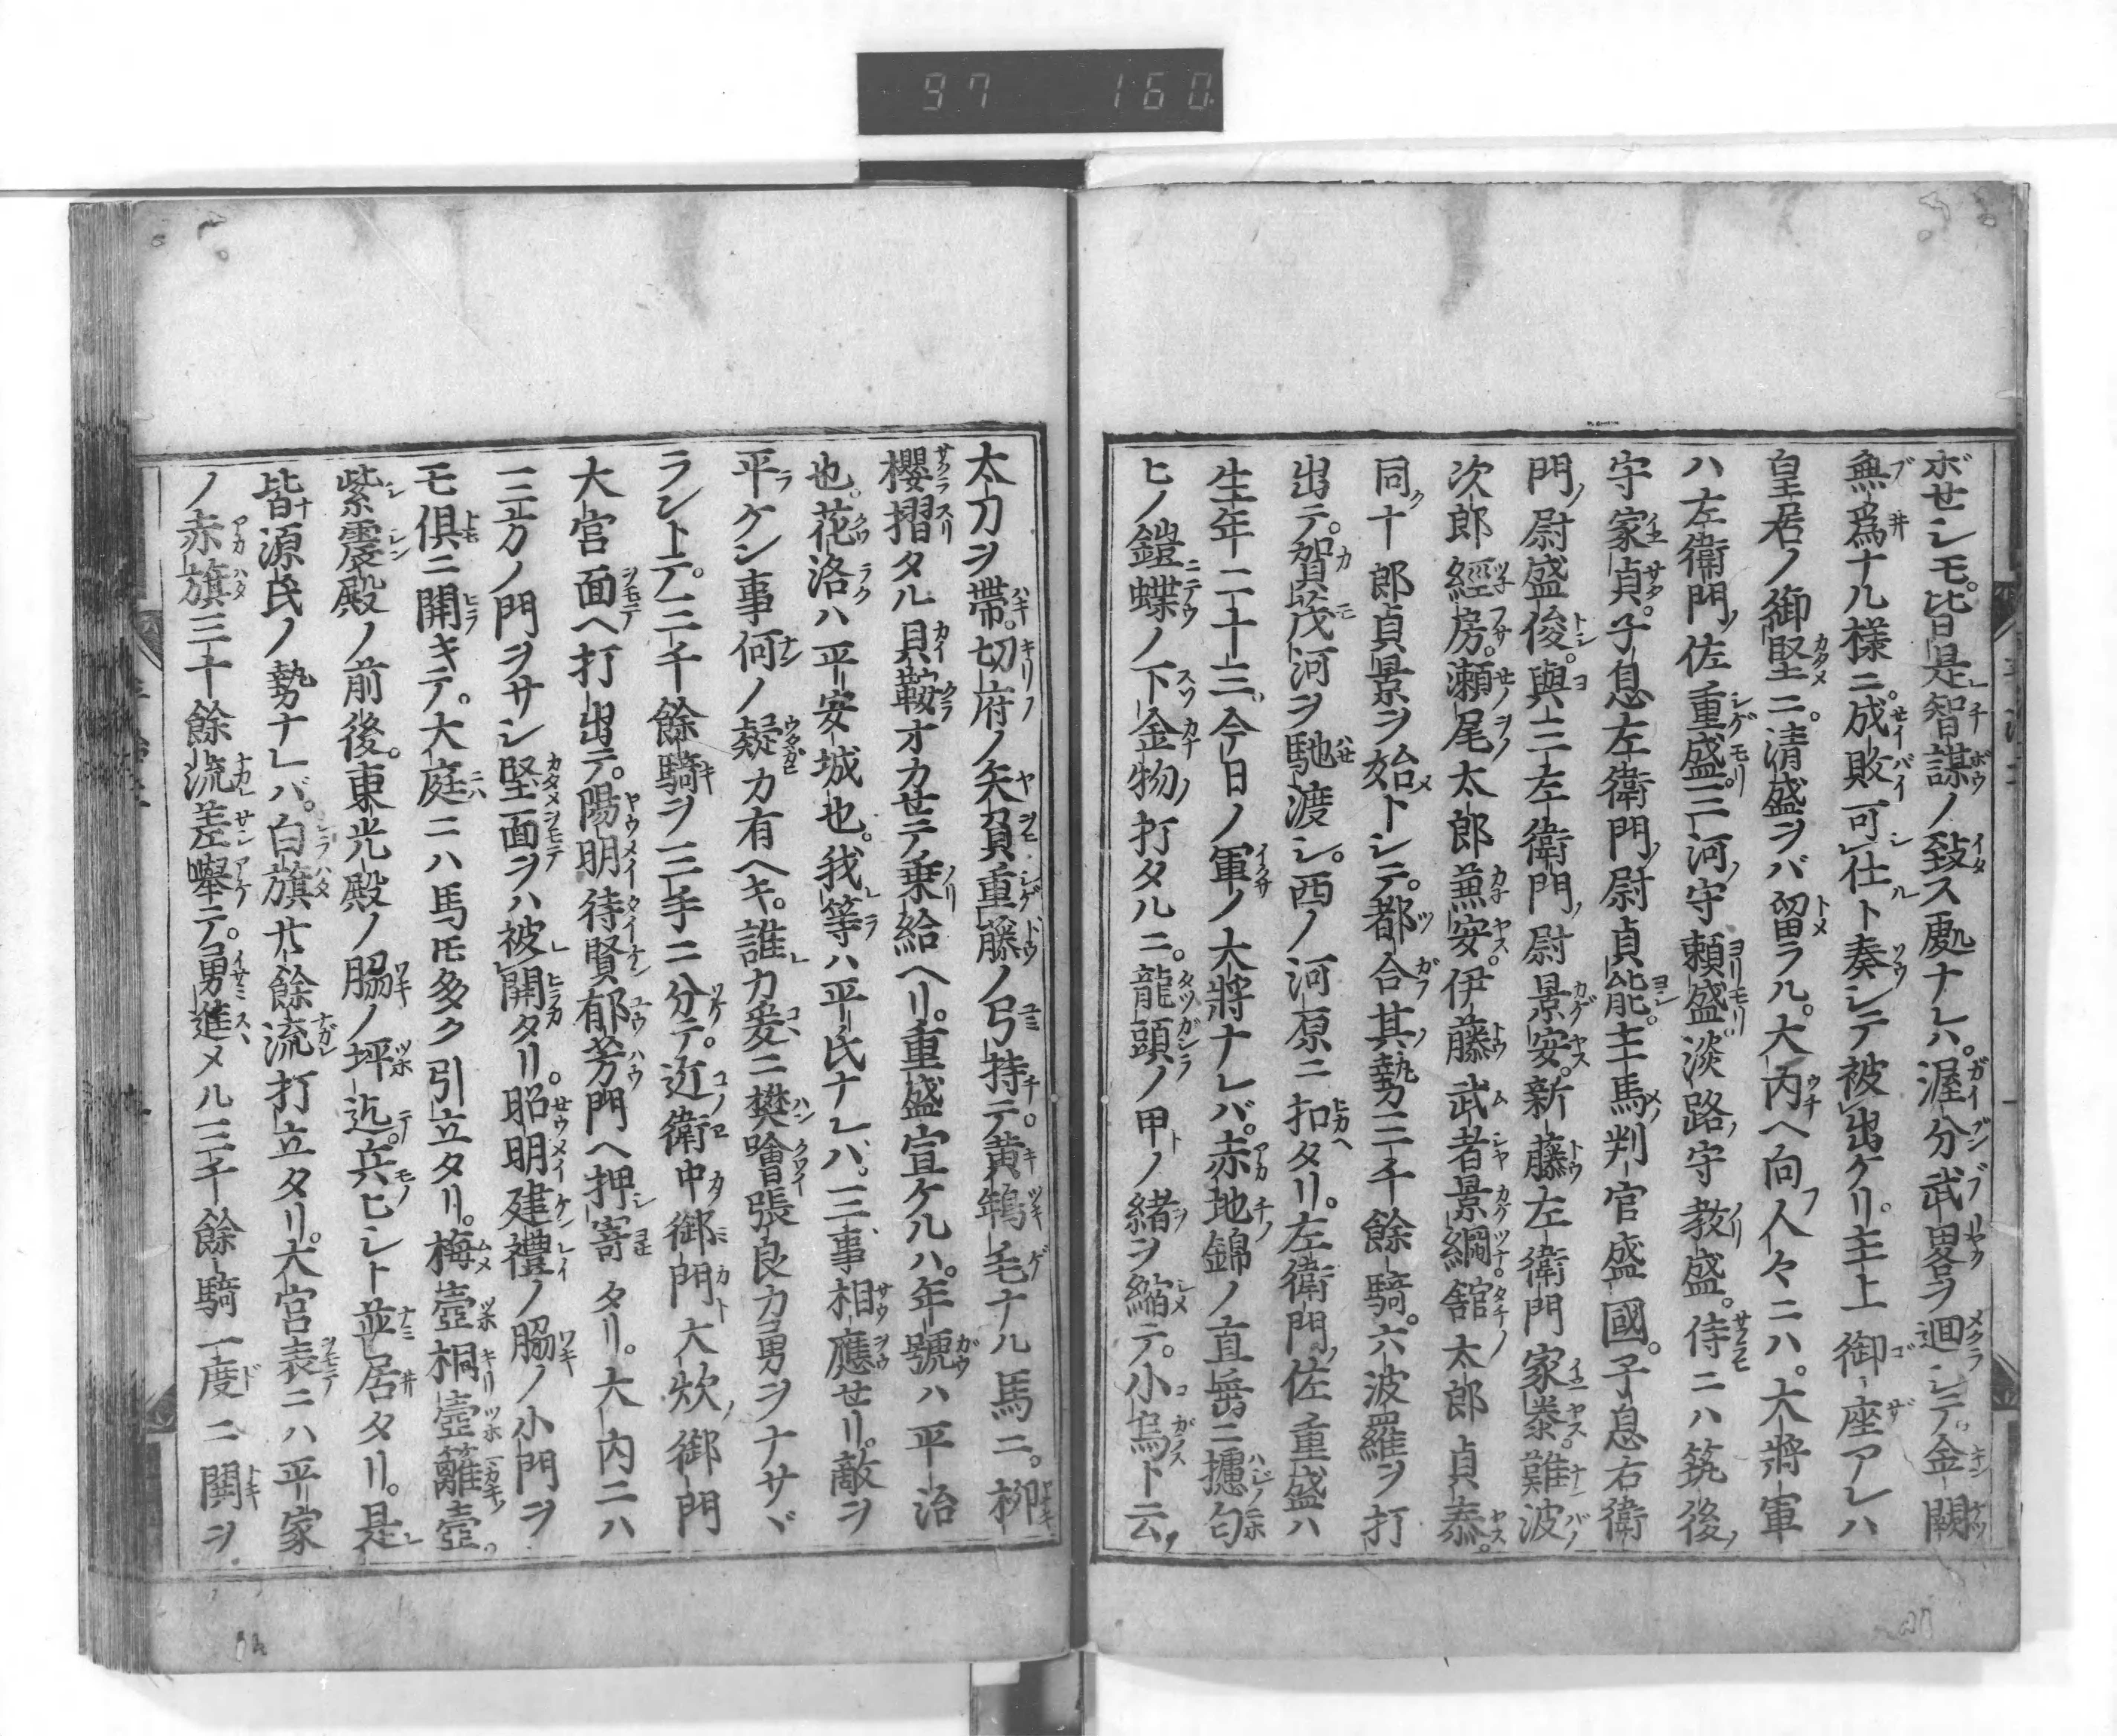 97 160
ボセシモ。皆是智謀ノ致ス處ナレハ。涯分武畧ヲ廻シテ。金闕
無爲ナル様ニ。成敗可仕ト奏シテ被出ケリ。主上御座アレハ
皇居ノ御堅ニ。清盛ヲバ留ラル。大内ヘ向人々ニハ。大將軍
ハ左衛門佐重盛。三河守頼盛淡路守教盛。侍ニハ筑後
守家貞。子息左衛門尉貞能。主馬判官盛國。子息右衛
門尉盛俊。與三左衛門尉景安。新藤左衛門家泰。難波
次郎經房。瀬尾太郎兼安。伊藤武者景綱。舘太郎貞泰。
同十郎貞景ヲ始トシテ。都合其勢三千餘騎。六波羅ヲ打
出テ。賀茂河ヲ馳渡シ。西ノ河原ニ扣タリ。左衛門佐重盛ハ
生年二十三。今日ノ軍ノ大將ナレバ。赤地錦ノ直垂ニ櫨匂
ヒノ鎧蝶ノ下金物打タルニ。龍頭ノ甲ノ緒ヲ縮テ。小烏ト云
太刀ヲ帶。切府ノ矢負重藤ノ弓持テ。黄鴾毛ナル馬ニ。柳
櫻摺タル貝鞍オカセテ乗給ヘリ。重盛宣ケルハ。年號ハ平治
也。花洛ハ平安城也。我等ハ平氏ナレハ。三事相應セリ。敵ヲ
平ケン事何ノ疑カ有ヘキ。誰カ爰ニ樊噲張良カ勇ヲナサヾ
ラントテ。三千餘騎ヲ三手ニ分テ。近衛中御門大炊御門
大宮面ヘ打出テ。陽明待賢郁芳門ヘ押寄タリ。大内ニハ
三方ノ門ヲサシ堅面ヲハ被開タリ。昭明建禮ノ脇ノ小門ヲ
モ俱ニ開キテ。大庭ニハ馬モ多ク引立タリ。梅壺桐壺籬壺。
紫震殿ノ前後。東光殿ノ脇ノ坪迄。兵ヒシト並居タリ。是
皆源氏ノ勢ナレバ。白旗廿餘流打立タリ。大宮表ニハ平家
ノ赤旗三十餘流差擧テ。勇進メル三千餘騎一度ニ鬨ヲ